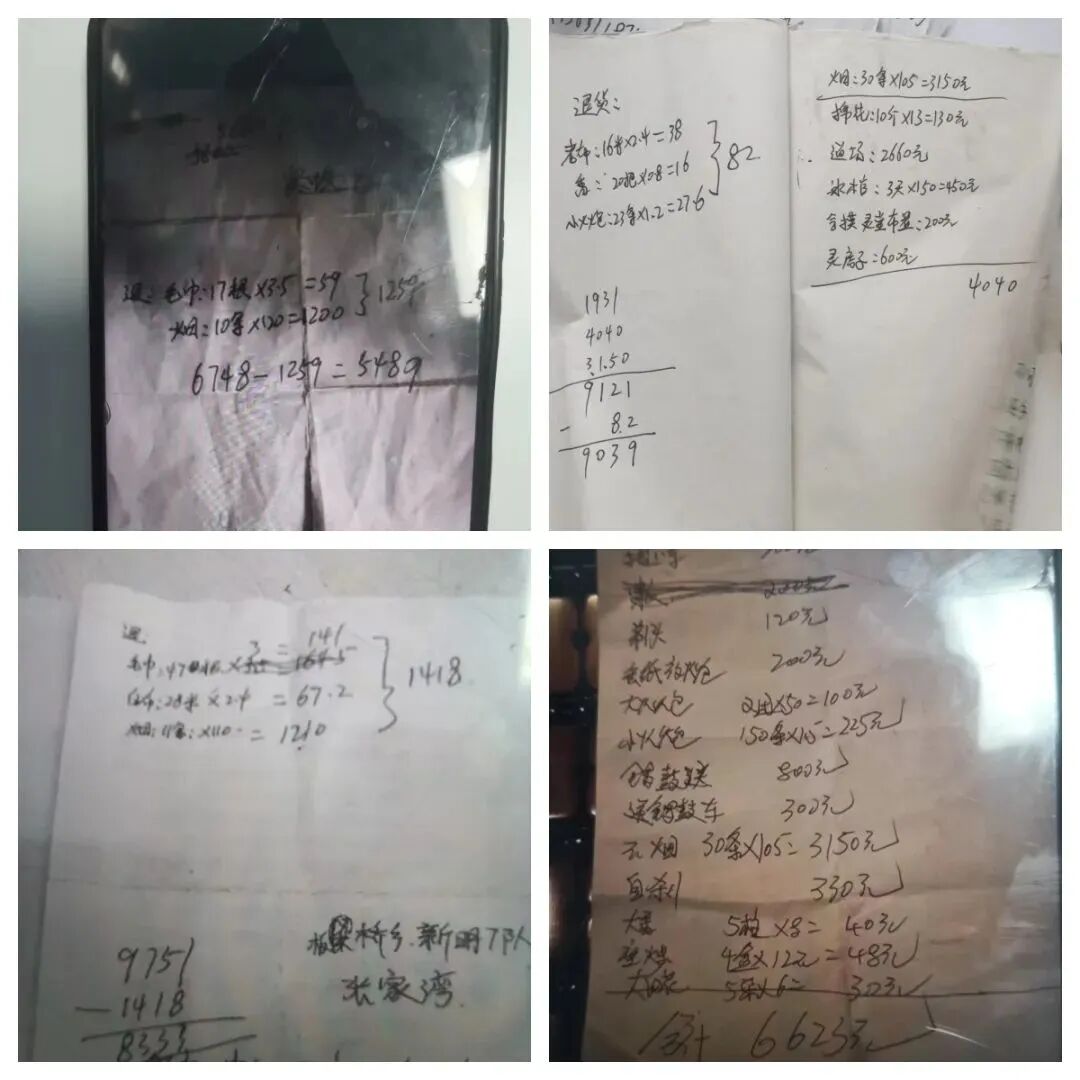 退：毛巾：17根×3.5=59
烟：10条×120=1200
1259
6748-1259=5489
退货：
孝布：16米×2.4=38
香：20把×0.8=16
小火炮：23条×1.2=27.6
82
1931
4040
3150
9121
- 82
9039
烟：30条×105=3150元
棉花：10个×13=130元
道场：2660元
冰棺：3天×150=450元
灵堂布置：200元
灵房子：600元
4040
退
毛巾：47×3=141
白布：28米×2.4=67.2
烟：11条：×110=1210
1418
9751
-1418
8333
桥乡.新明7队
张家湾
120元
200元
大火炮 2团×50=100元
小火炮 150条×1.5=225元
800元
300元
云烟 30条×105=3150元
330元
大香 5×8=40元
4盒×12元=48元
5×6=30元
合计 6623元